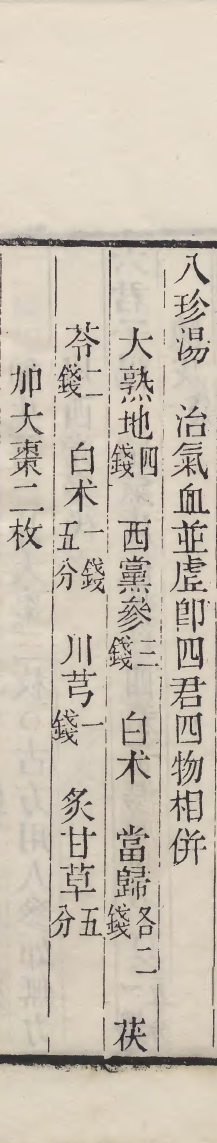 八珍湯　治氣血並虛卽四君四物相併
大熟地四錢　西黨參三錢　白术　當歸各二錢　茯
苓二錢　白术一錢五分　川芎一錢　炙甘草五分
加大棗二枚